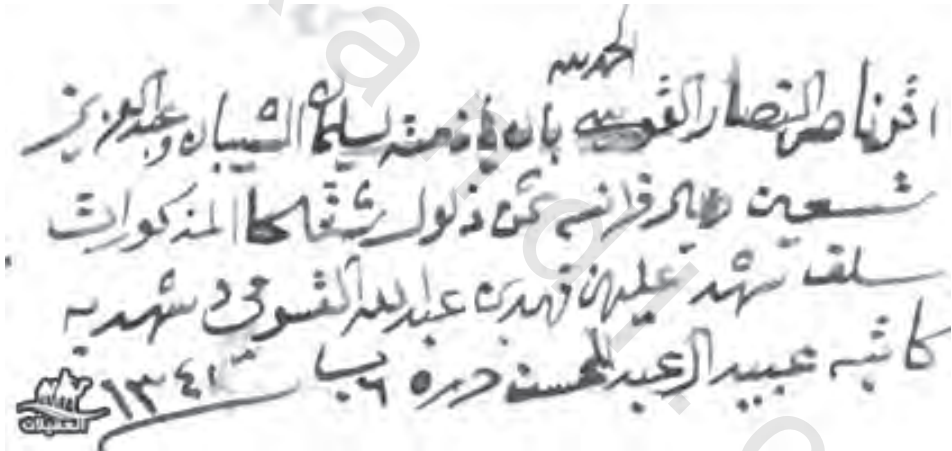 الحمد لله
اقر ناصر النصار القوسي بان في ذمته لسليمان الشيبان وعبدالعزيز
تسعين ريال فرانسه ثمن ذلول شقحا المذكورات
سلف شهد على فهد عبدالله القوسي وشهد به
كاتبه عبيد العبدالمحسن حرر ٦ ١٣٤١
العقيلات